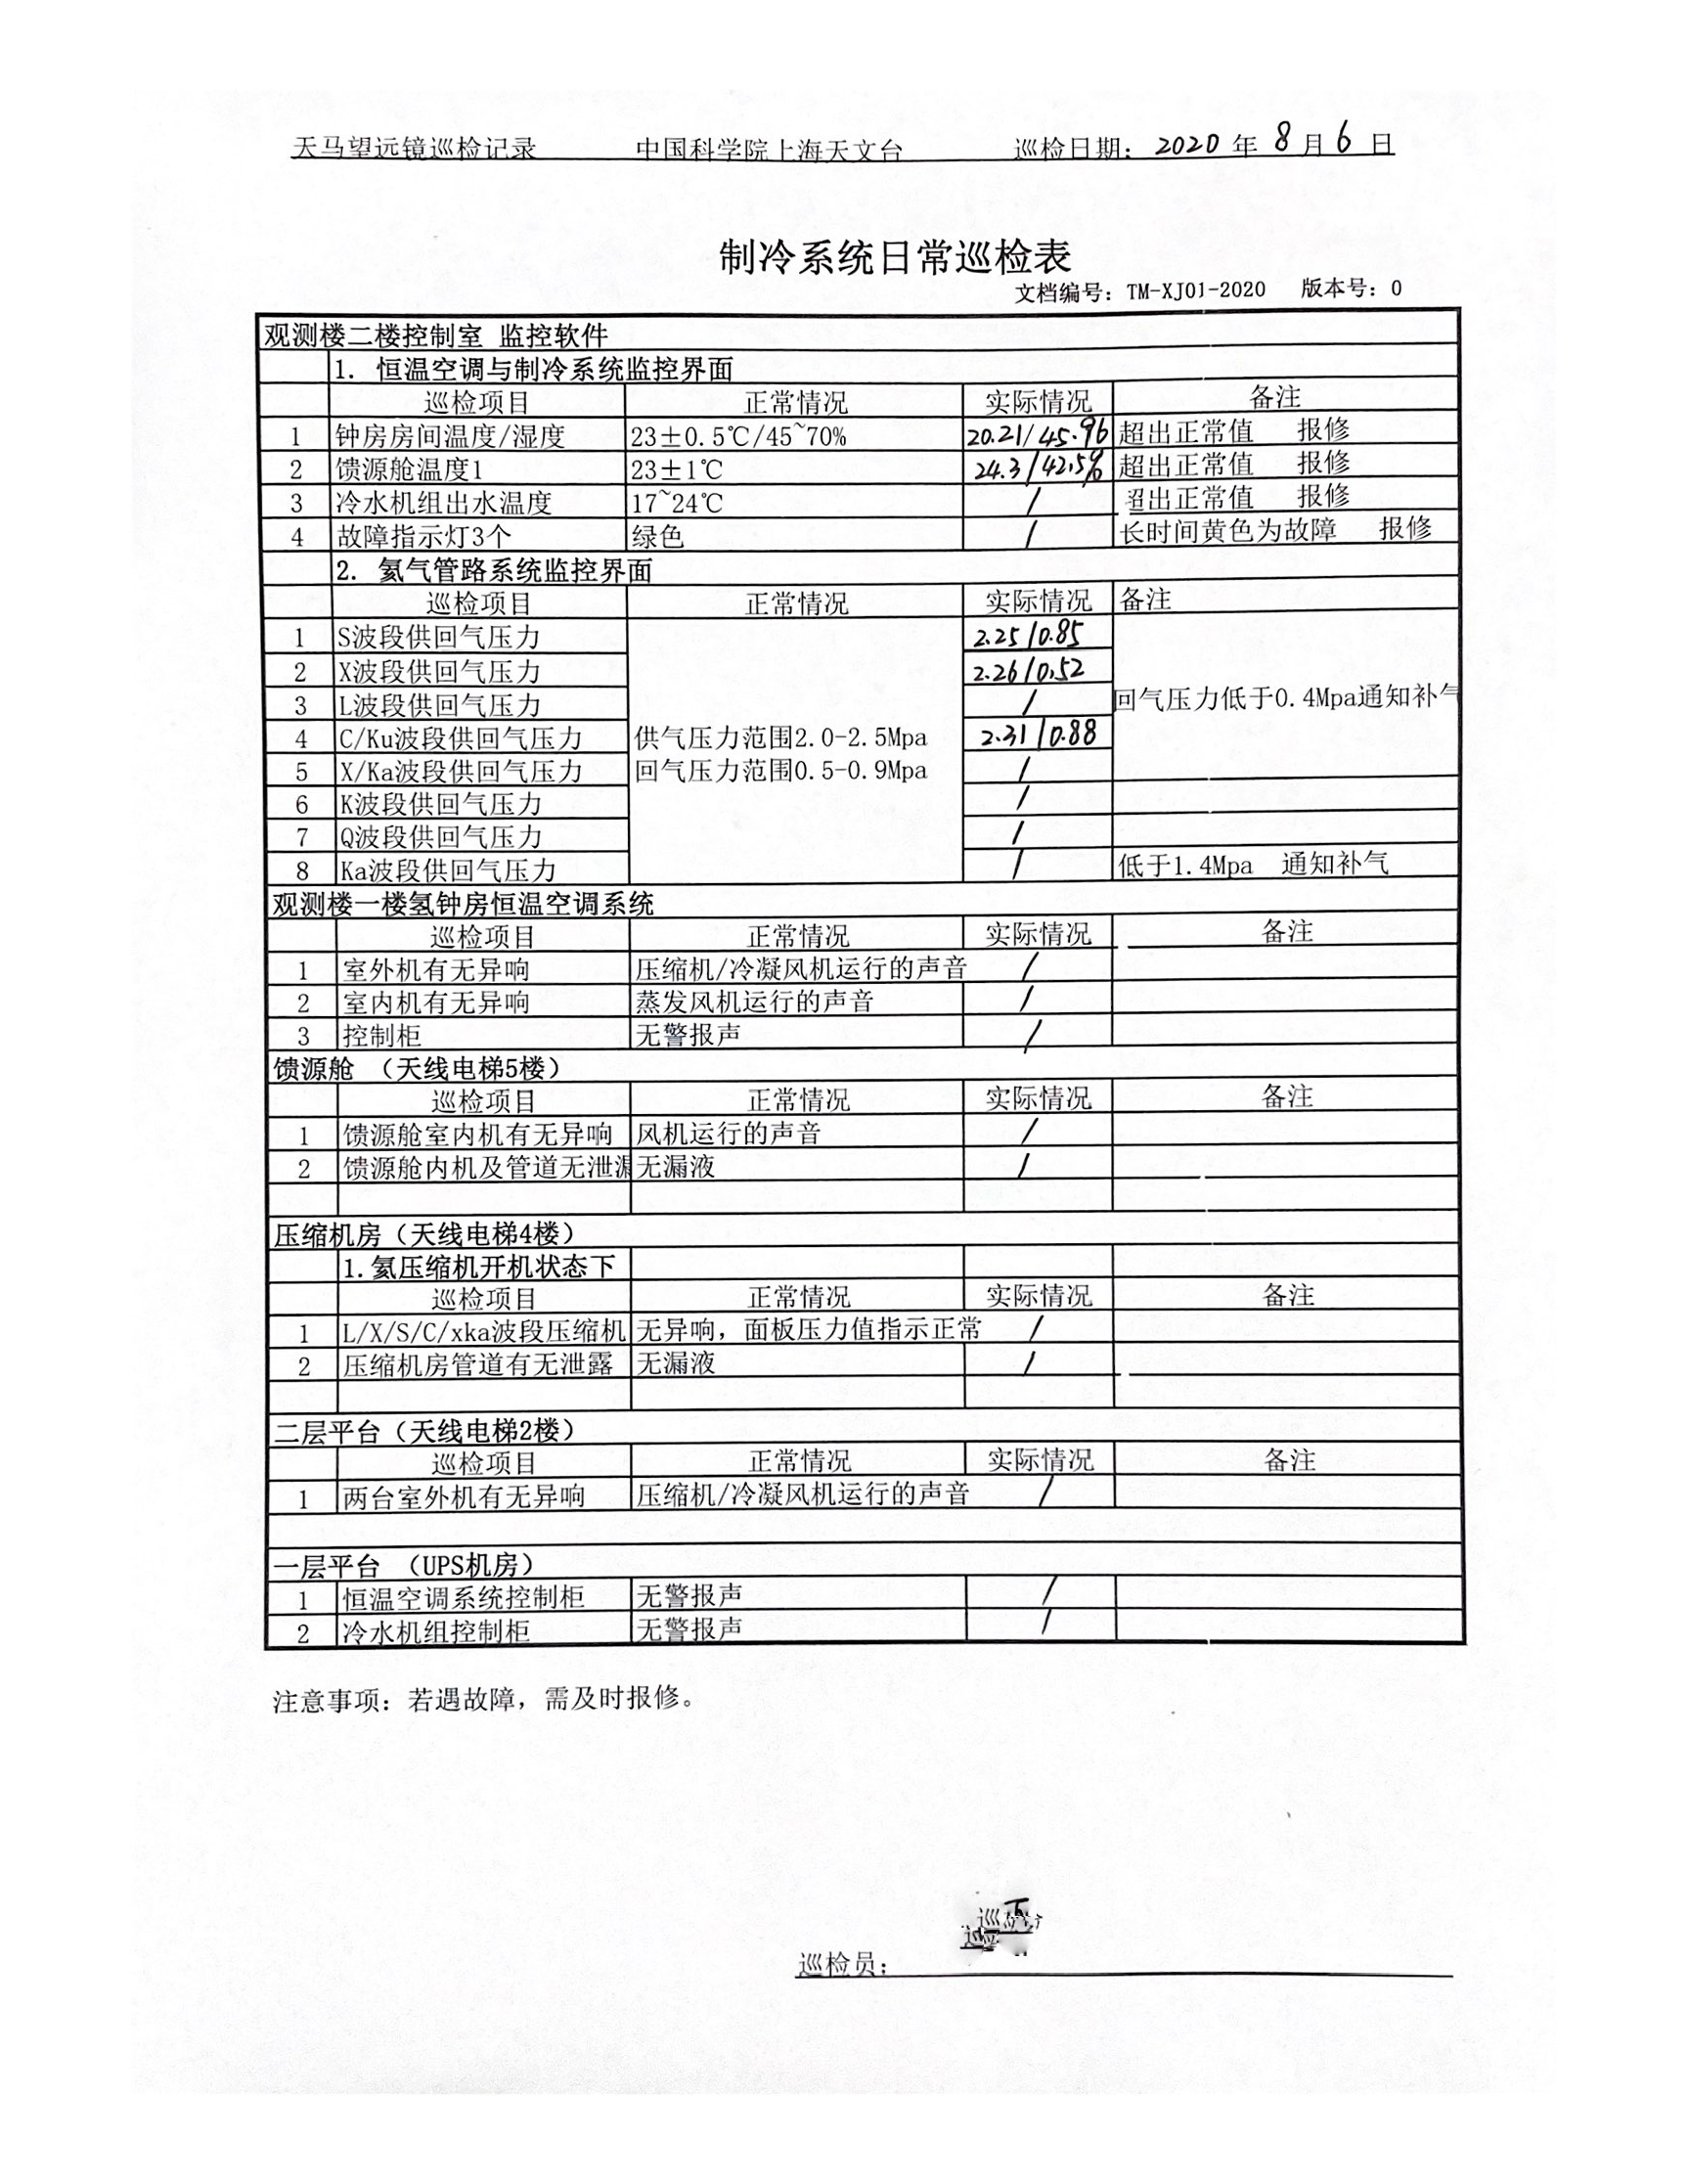 天马望远镜巡检记录 中国科学院上海天文台 巡检日期: 2020 年 8 月 6 日
制冷系统日常巡检表
文档编号: TM-XJ01-2020 版本号: 0
观测楼二楼控制室 监控软件
1. 恒温空调与制冷系统监控界面
巡检项目 正常情况 实际情况 备注
1 钟房房间温度/湿度 23±0.5℃/45~70% 20.21/45.96 超出正常值 报修
2 馈源舱温度1 23±1℃ 24.3/42.5% 超出正常值 报修
3 冷水机组出水温度 17~24℃ / 超出正常值 报修
4 故障指示灯3个 绿色 / 长时间黄色为故障 报修
2. 氦气管路系统监控界面
巡检项目 正常情况 实际情况 备注
1 S波段供回气压力 2.25/0.85
2 X波段供回气压力 2.26/0.52
3 L波段供回气压力 / 回气压力低于0.4Mpa通知补气
4 C/Ku波段供回气压力 供气压力范围2.0-2.5Mpa 2.31/0.88
5 X/Ka波段供回气压力 回气压力范围0.5-0.9Mpa /
6 K波段供回气压力 /
7 Q波段供回气压力 /
8 Ka波段供回气压力 / 低于1.4Mpa 通知补气
观测楼一楼氢钟房恒温空调系统
巡检项目 正常情况 实际情况 备注
1 室外机有无异响 压缩机/冷凝风机运行的声音 /
2 室内机有无异响 蒸发风机运行的声音 /
3 控制柜 无警报声 /
馈源舱 （天线电梯5楼）
巡检项目 正常情况 实际情况 备注
1 馈源舱室内机有无异响 风机运行的声音 /
2 馈源舱内机及管道无泄漏 无漏液 /
压缩机房（天线电梯4楼）
1.氦压缩机开机状态下
巡检项目 正常情况 实际情况 备注
1 L/X/S/C/xka波段压缩机 无异响，面板压力值指示正常 /
2 压缩机房管道有无泄露 无漏液 /
二层平台（天线电梯2楼）
巡检项目 正常情况 实际情况 备注
1 两台室外机有无异响 压缩机/冷凝风机运行的声音 /
一层平台 （UPS机房）
1 恒温空调系统控制柜 无警报声 /
2 冷水机组控制柜 无警报声 /
注意事项: 若遇故障，需及时报修。
巡检员: